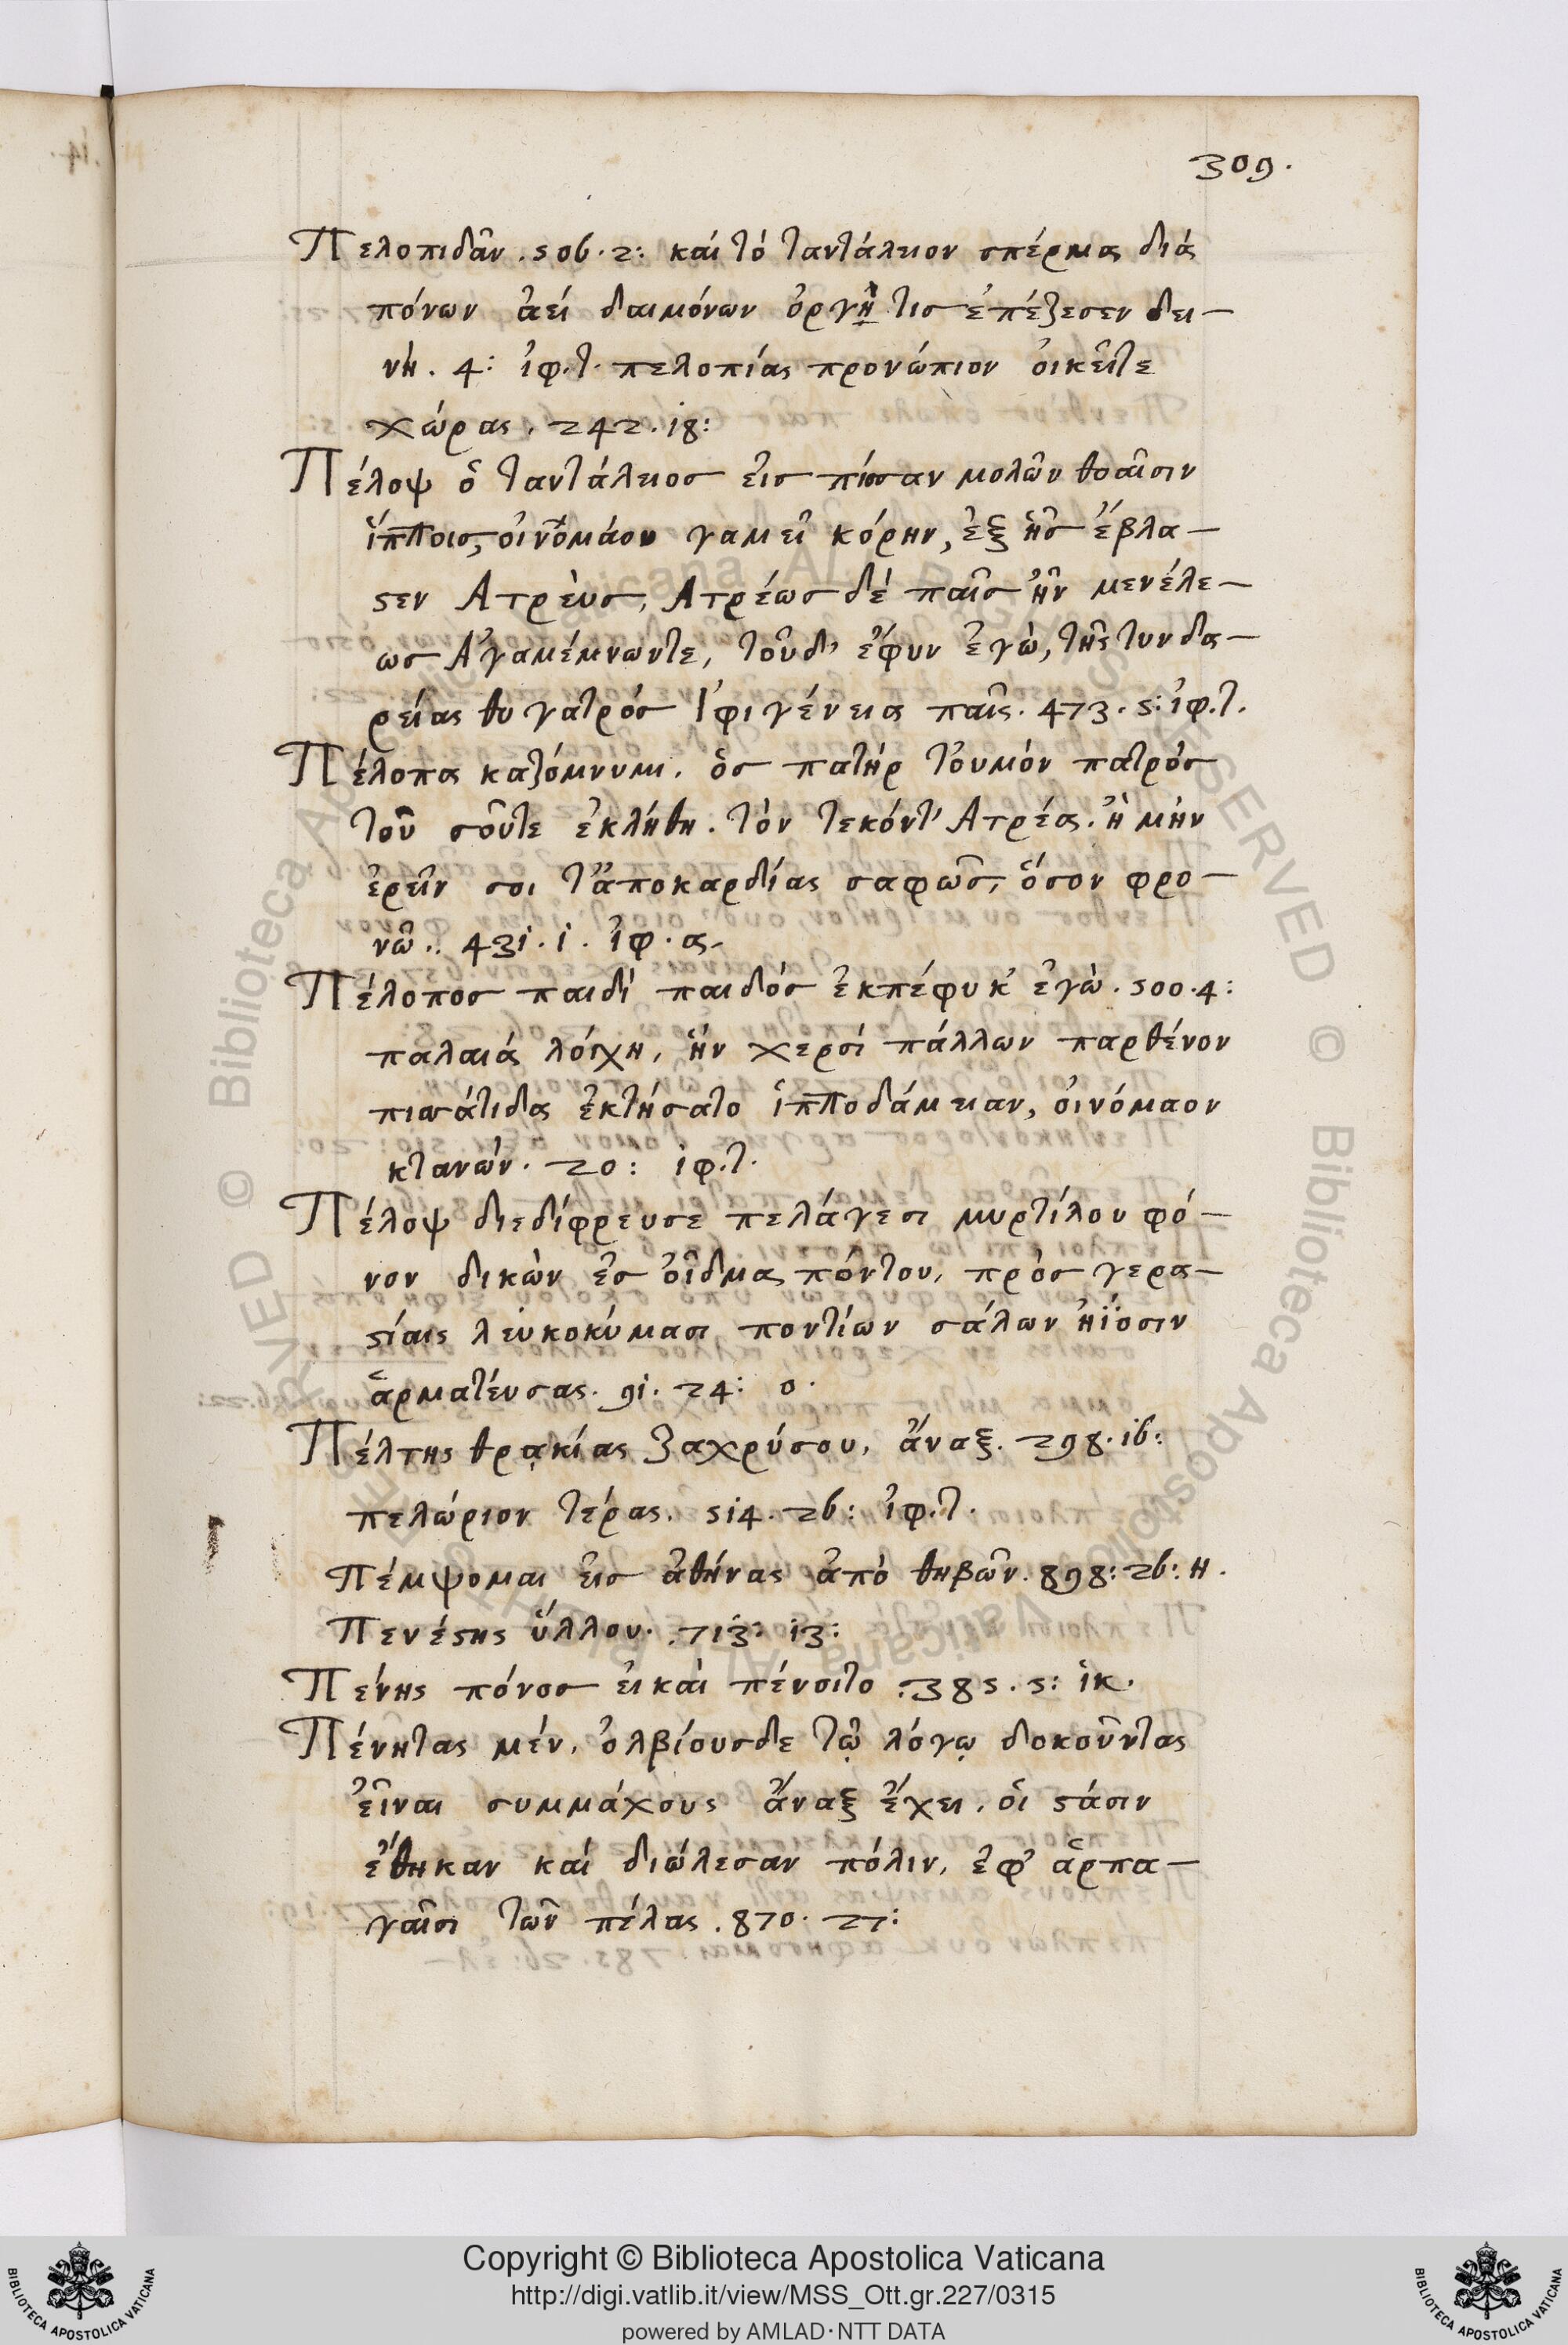 309.
Πελοπιδᾶν. 506. 2: καί τό ταντάλειον σπέρμα διά
πόνων ἀεί δαιμόνων ὀργή τισ ἐπέζεσεν δει–
νή. 4: ἰφ. τ. πελοπίας προνώπιον οἰκεῖτε
χώρας. 242. i8:
Πέλοψ ὁ ταντάλειοσ εἰσ πίσαν μολὼν θοαῖσιν
ἵπποισ, οἰνομάου γαμεῖ κόρην, ἐξ ἧσ ἔβλα–
ϛεν Ατρεὺσ, Ατρέωσ δέ παῖσ ἦν μενέλε–
ωσ Αγαμέμνωντε, τοῦδ' ἔφυν ἐγὼ, τῆς τυνδα–
ρείας θυγατρόσ Ιφιγένεια παῖς. 473. 5: ἰφ. τ.
Πέλοπα κατόμνυμι. ὃσ πατήρ τοὐμόν πατρόσ
τοῦ σοῦτε ἐκλήθη. τὸν τεκόντ' Ατρέα. ἦ μήν
ἐρεῖν σοι τἄποκαρδίας σαφῶσ, ὅσον φρο–
νῶ.. 43i. i. ἰφ. α.
Πέλοπος παιδί παιδόσ ἐκπέφυκ' ἐγὼ. 500. 4:
παλαιά λόγχη, ἥν χερσί πάλλων παρθένον
πισάτιδα ἐκτήσατο ἱπποδάμειαν, οἰνόμαον
κτανών. 20: ἰφ. τ.
Πέλοψ διεδίφρευσε πελάγεσι μυρτίλου φό–
νον δικὼν ἐσ οἶδμα πόντου, πρὸσ γερα–
ϛίαις λευκοκύμασι ποντίων σάλων ἠϊόσιν
ἁρματεύσας. 9i. 24: ο.
Πέλτης θρᾳκίας ζαχρύσου, ἄναξ. 298. i6:
πελώριον τέρας. 5i4. 26: ἰφ. τ.
Πέμψομαι εἰσ ἀθήνας ἀπὸ θηβῶν. 898: 26: η.
Πενέϛης ὕλλου. 7i3: i3:
Πένης πόνοσ εἰ καὶ πένοιτο. 385. 5: ἱκ.
Πένητας μέν, ὀλβίουσδε τῷ λόγῳ δοκοῦντας
εἶναι συμμάχους ἄναξ ἔχει. οἱ ϛάσιν
ἔθηκαν καί διώλεσαν πόλιν, ἐφ' ἁρπα–
γαῖσι τῶν πέλας. 870. 27:
Copyright © Biblioteca Apostolica Vaticana
http://digi.vatlib.it/view/MSS_Ott.gr.227/0315
powered by AMLAD·NTT DATA